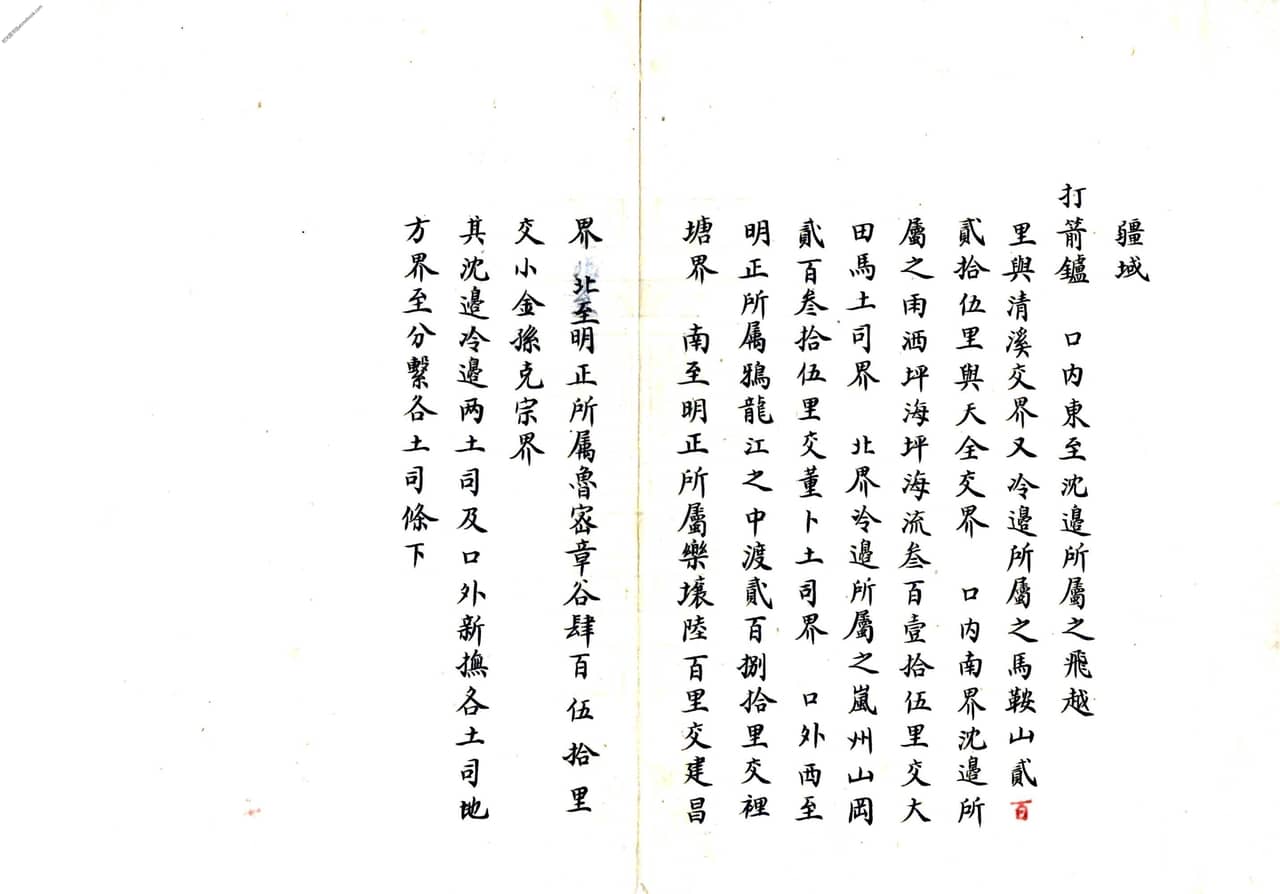 疆域
打箭鑪　口内東至沈邉所屬之飛越
里與清溪交界又冷邉所屬之馬鞍山貳百
貳拾伍里與天全交界　口内南界沈邉所
屬之雨洒坪海坪海流叁百壹拾伍里交大
田馬土司界　北界冷邉所屬之嵐州山岡
貳百叁拾伍里交董卜土司界　口外西至
明正所属鴉龍江之中渡貳百捌拾里交裡
塘界　南至明正所屬樂壤陸百里交建昌
界　北至明正所属魯宻章谷肆百伍拾里
交小金孫克宗界
其沈邉冷邉两土司及口外新撫各土司地
方界至分繫各土司條下